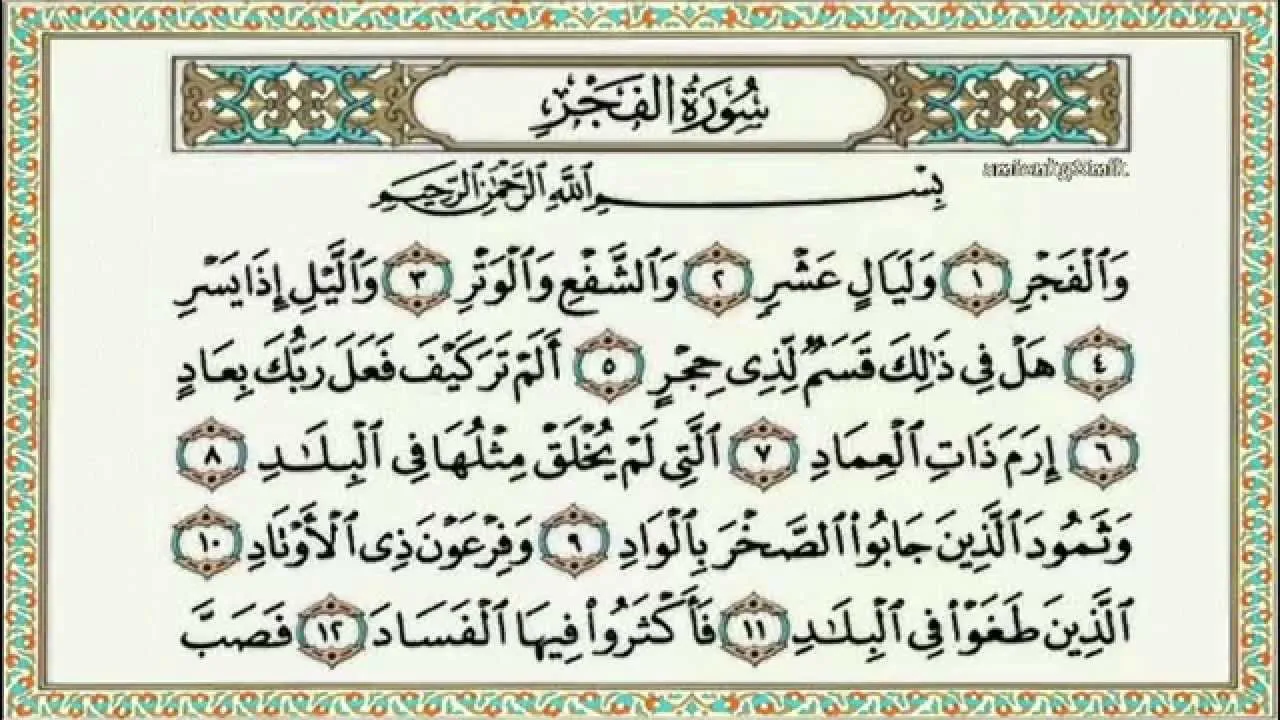 سُورَةُ الفَجْرِ
بِسْمِ اللَّهِ الرَّحْمَٰنِ الرَّحِيمِ
وَٱلْفَجْرِ ١ وَلَيَالٍ عَشْرٍ ٢ وَٱلشَّفْعِ وَٱلْوَتْرِ ٣ وَٱلَّيْلِ إِذَا يَسْرِ
٤ هَلْ فِى ذَٰلِكَ قَسَمٌ لِّذِى حِجْرٍ ٥ أَلَمْ تَرَ كَيْفَ فَعَلَ رَبُّكَ بِعَادٍ
٦ إِرَمَ ذَاتِ ٱلْعِمَادِ ٧ ٱلَّتِى لَمْ يُخْلَقْ مِثْلُهَا فِى ٱلْبِلَٰدِ ٨
وَثَمُودَ ٱلَّذِينَ جَابُوا۟ ٱلصَّخْرَ بِٱلْوَادِ ٩ وَفِرْعَوْنَ ذِى ٱلْأَوْتَادِ ١٠
ٱلَّذِينَ طَغَوْا۟ فِى ٱلْبِلَٰدِ ١١ فَأَكْثَرُوا۟ فِيهَا ٱلْفَسَادَ ١٢ فَصَبَّ